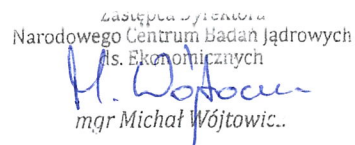 Zastępca Dyrektora
Narodowego Centrum Badań Jądrowych
ds. Ekonomicznych
M. Wójtowicz
mgr Michał Wójtowic..